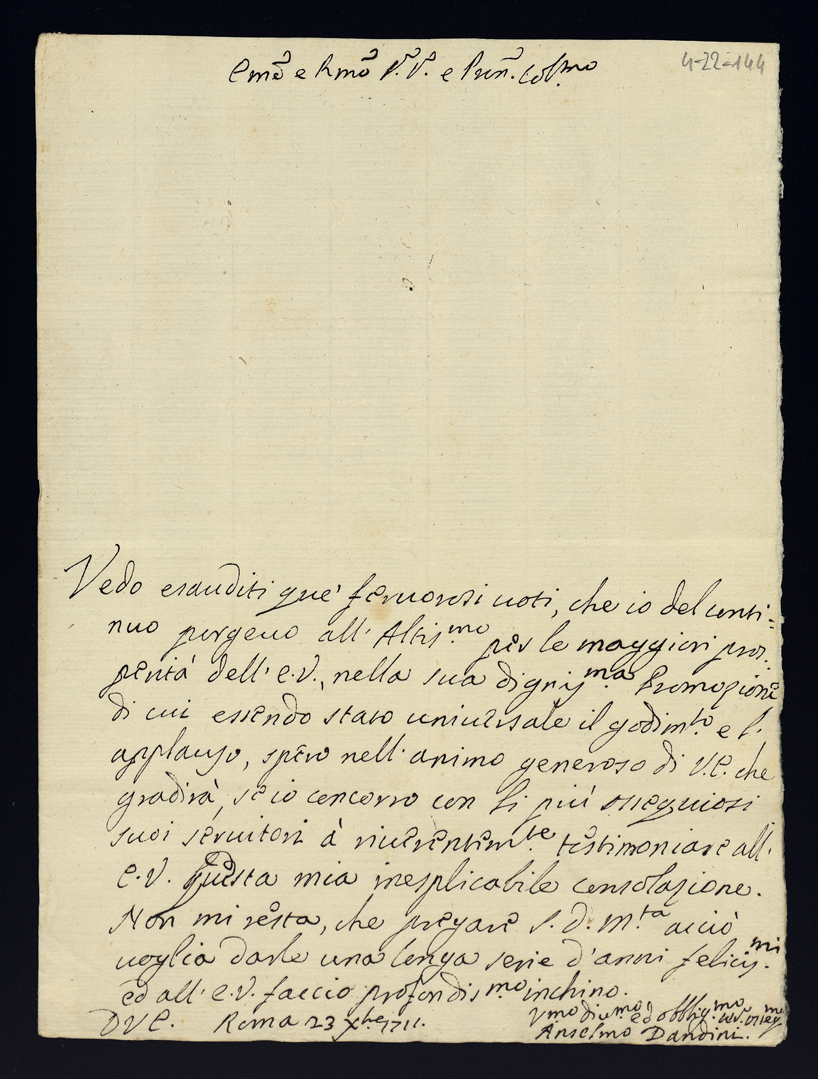 Emõ e Rmõ Sr. Sr. e Pron. Col.mo
4-22-144
Vedo esauditi que' feruorosi uoti, che io del conti=
nuo porgeuo all' Altis.mo per le maggiori pros=
perità dell' E.V., nella sua dignis.ma Promozione
di cui essendo stato uniuersale il godim.to e l'
applauso, spero nell' animo generoso di V.E. che
gradirà, se io concorro con li più ossequiosi
suoi seruitori à riuerentem.te testimoniare all'
E.V. questa mia inesplicabile consolazione.
Non mi resta, che pregare S. D. M.tà acciò
uoglia darle una longa serie d'anni felicis.mi
ed all' E.V. faccio profondis.mo inchino.
D V E. Roma 23 Xbre 1711.
Vmo diu.mo ed obblig.mo
Anselmo Dandini.